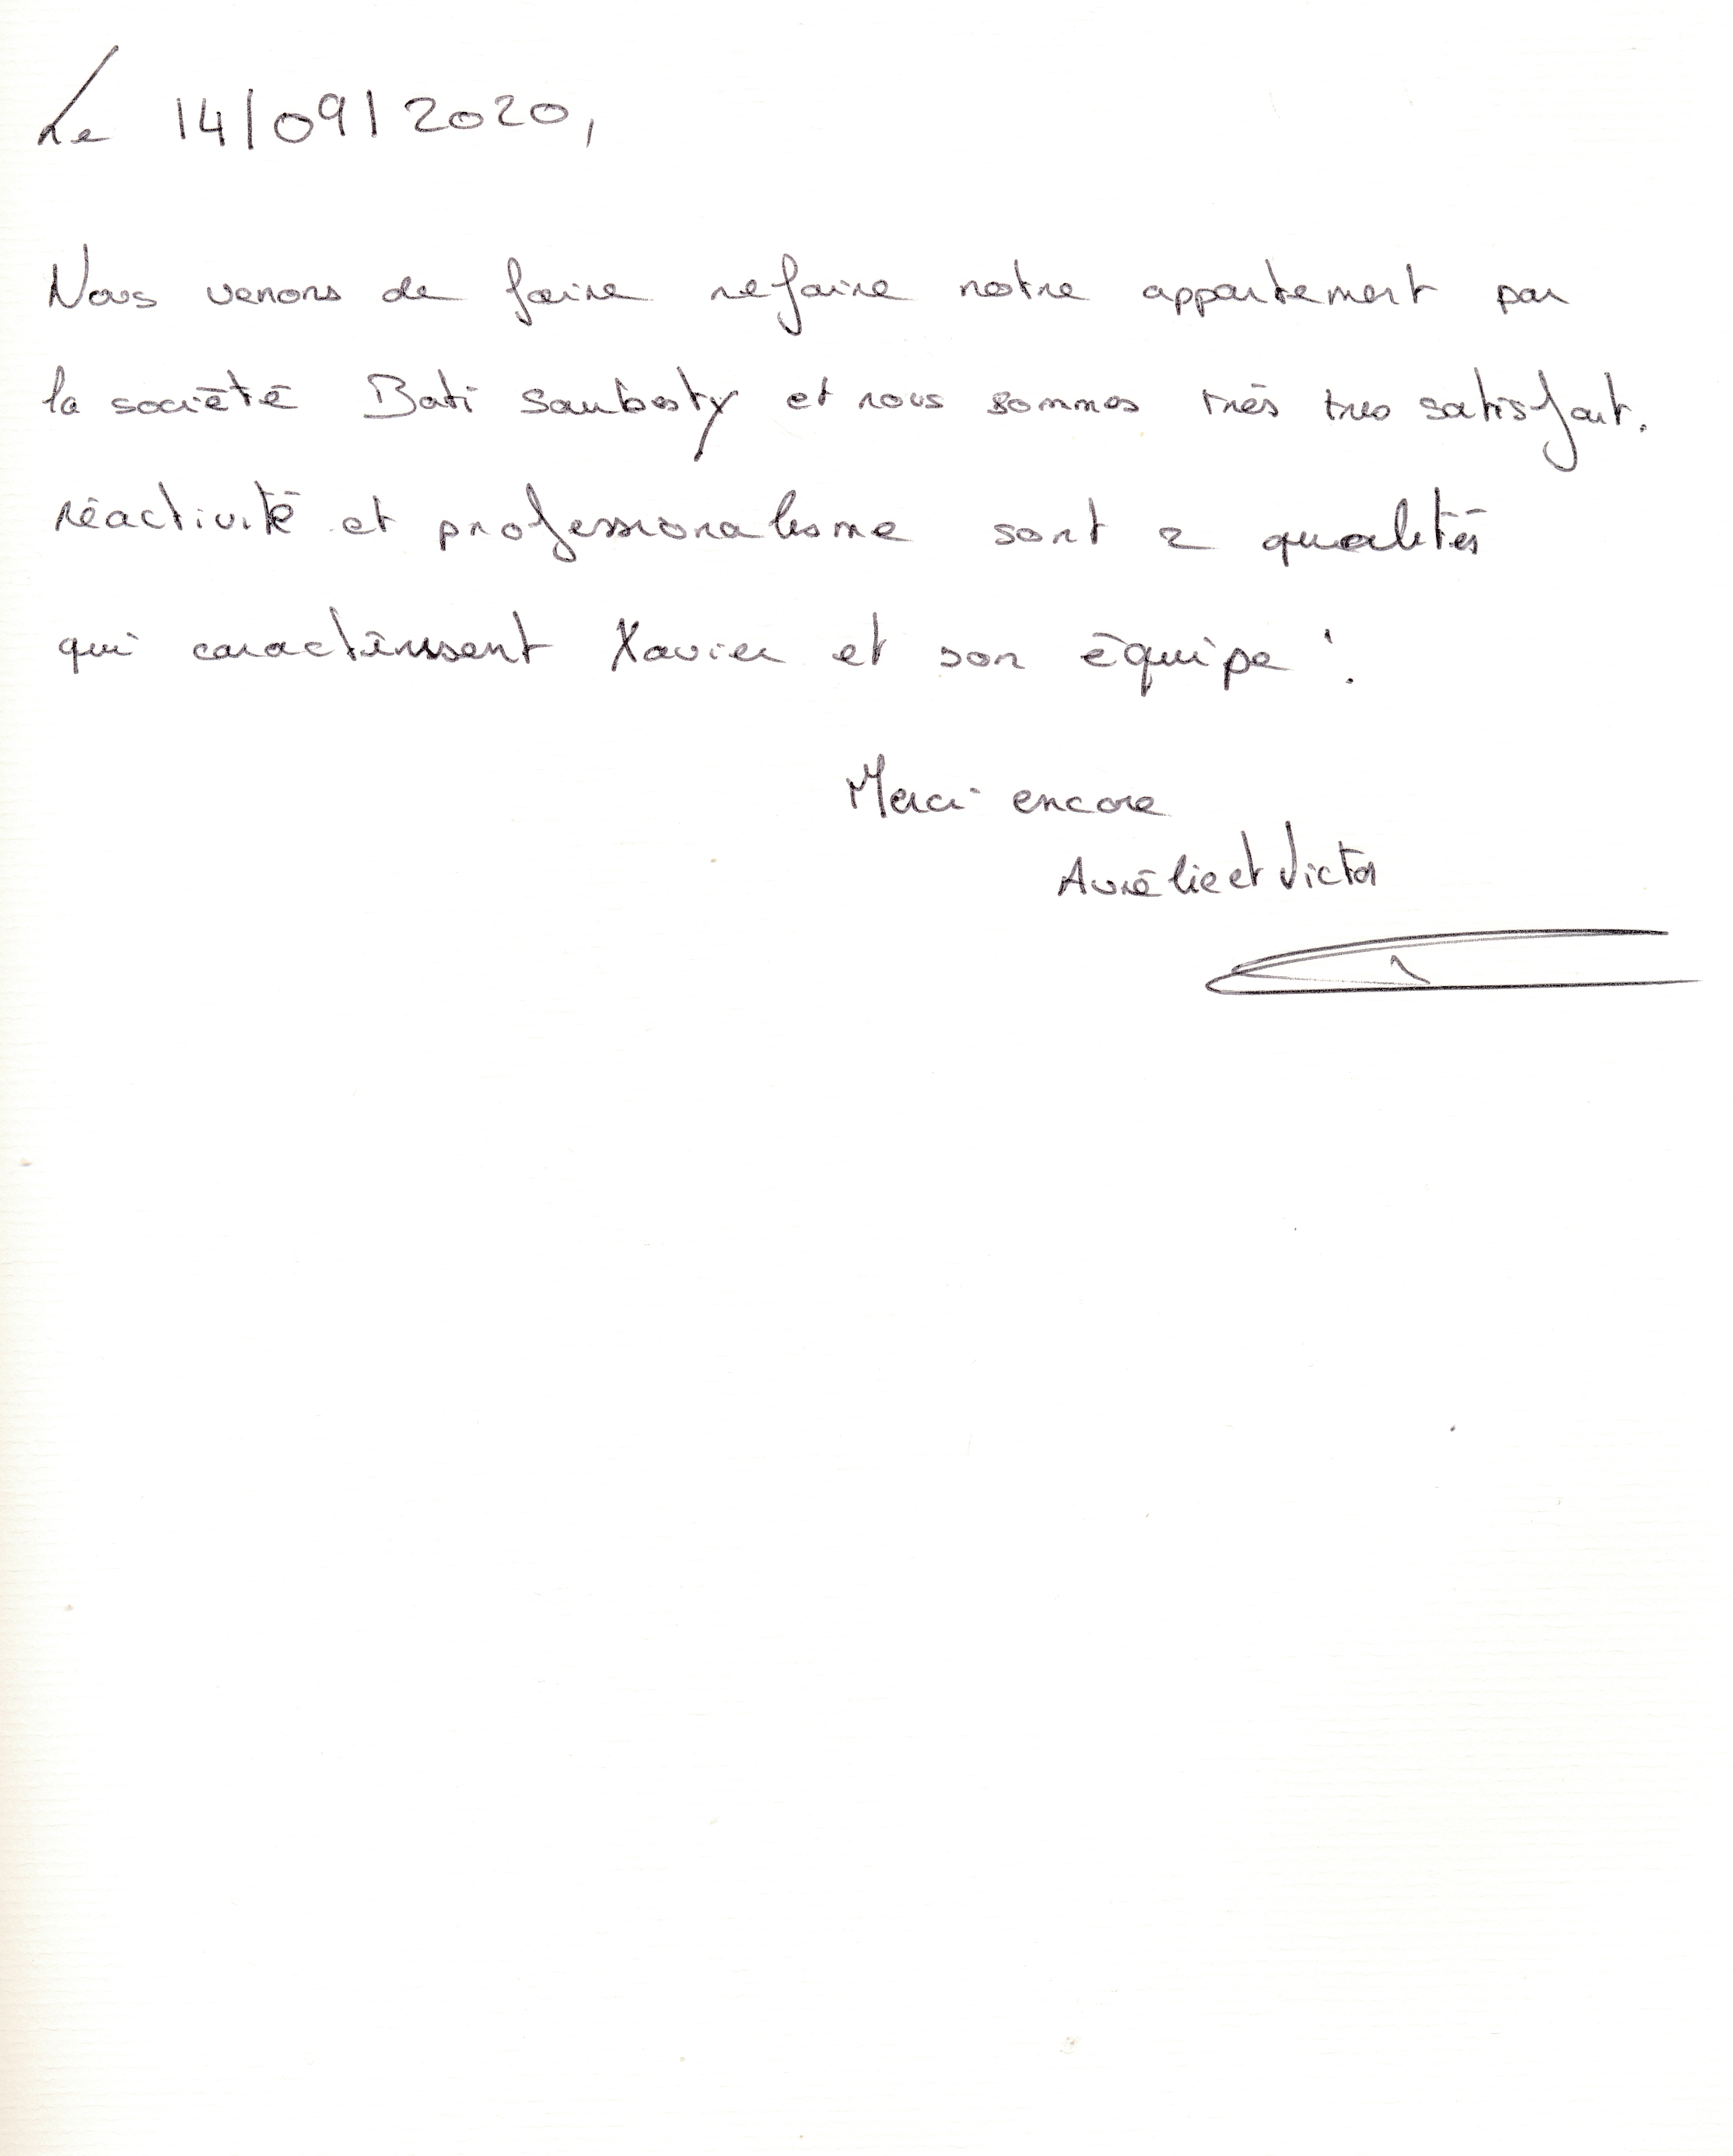 Le 14/09/2020,
Nous venons de faire refaire notre appartement par
la société Bati Saubesty et nous sommes très tres satisfait.
réactivité et professionalisme sont 2 qualités
qui caractérisent Xavier et son équipe !
Merci encore
Aurélie et Victor